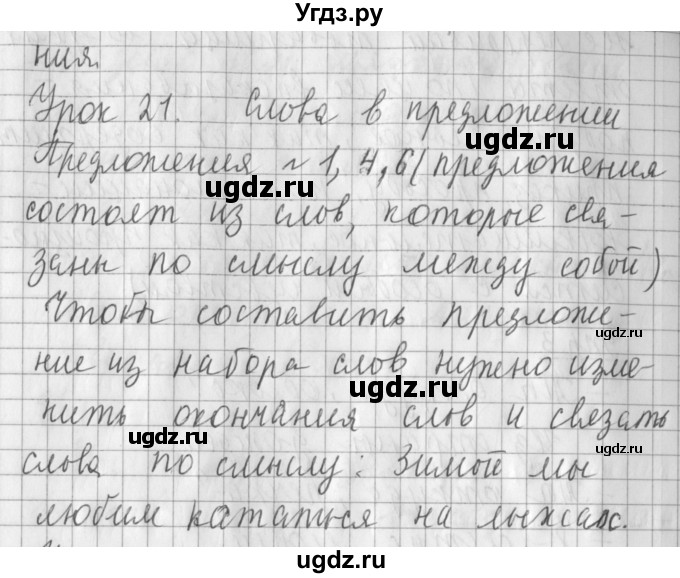 Угдз.ру
ния.
Урок 21. Слова в предложении
Предложения № 1, 4, 6 (предложения
ugdz.ru
ugdz.ru
состоят из слов, которые свя-
заны по смыслу между собой)
ugdz.ru
Чтобы составить предложе-
ugdz.ru
ние из набора слов нужно изме-
ugdz.ru
нить окончания слов и связать
ugdz.ru
слова по смыслу: Зимой мы
любим кататься на лыжах.
ugdz.ru
ugdz.ru